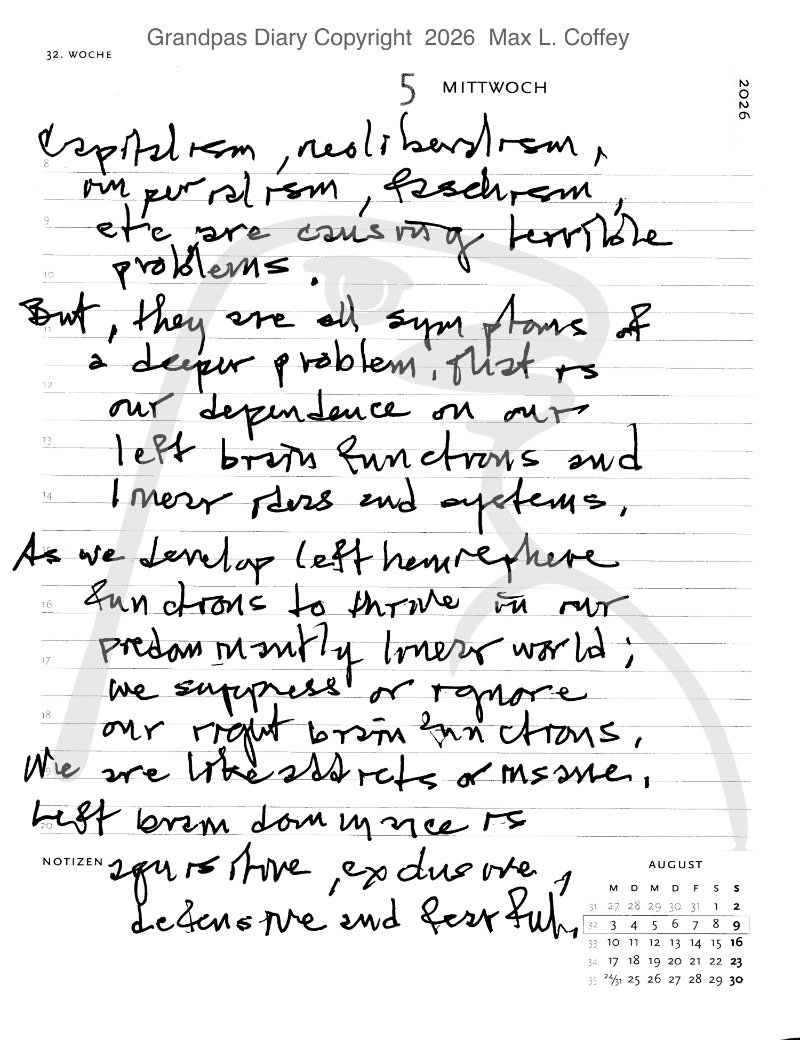 Grandpas Diary Copyright 2026 Max L. Coffey
32. WOCHE
5 MITTWOCH
2026
Capitalism, neoliberalism,
imperialism, faschism,
etc are causing terrible
problems.
But, they are all symptoms of
a deeper problem, that is
our dependence on our
left brain functions and
linear ideas and systems.
As we develop left hemisphere
functions to thrive in our
predominantly linear world;
we suppress or ignore
our right brain functions.
We are like addicts or insane.
Left brain dominance is
aquisitive, exclusive,
defensive and fearful.
8
9
10
11
12
13
14
16
17
18
19
20
NOTIZEN
AUGUST
M D M D F S S
31 27 28 29 30 31 1 2
32 3 4 5 6 7 8 9
33 10 11 12 13 14 15 16
34 17 18 19 20 21 22 23
35 24/31 25 26 27 28 29 30